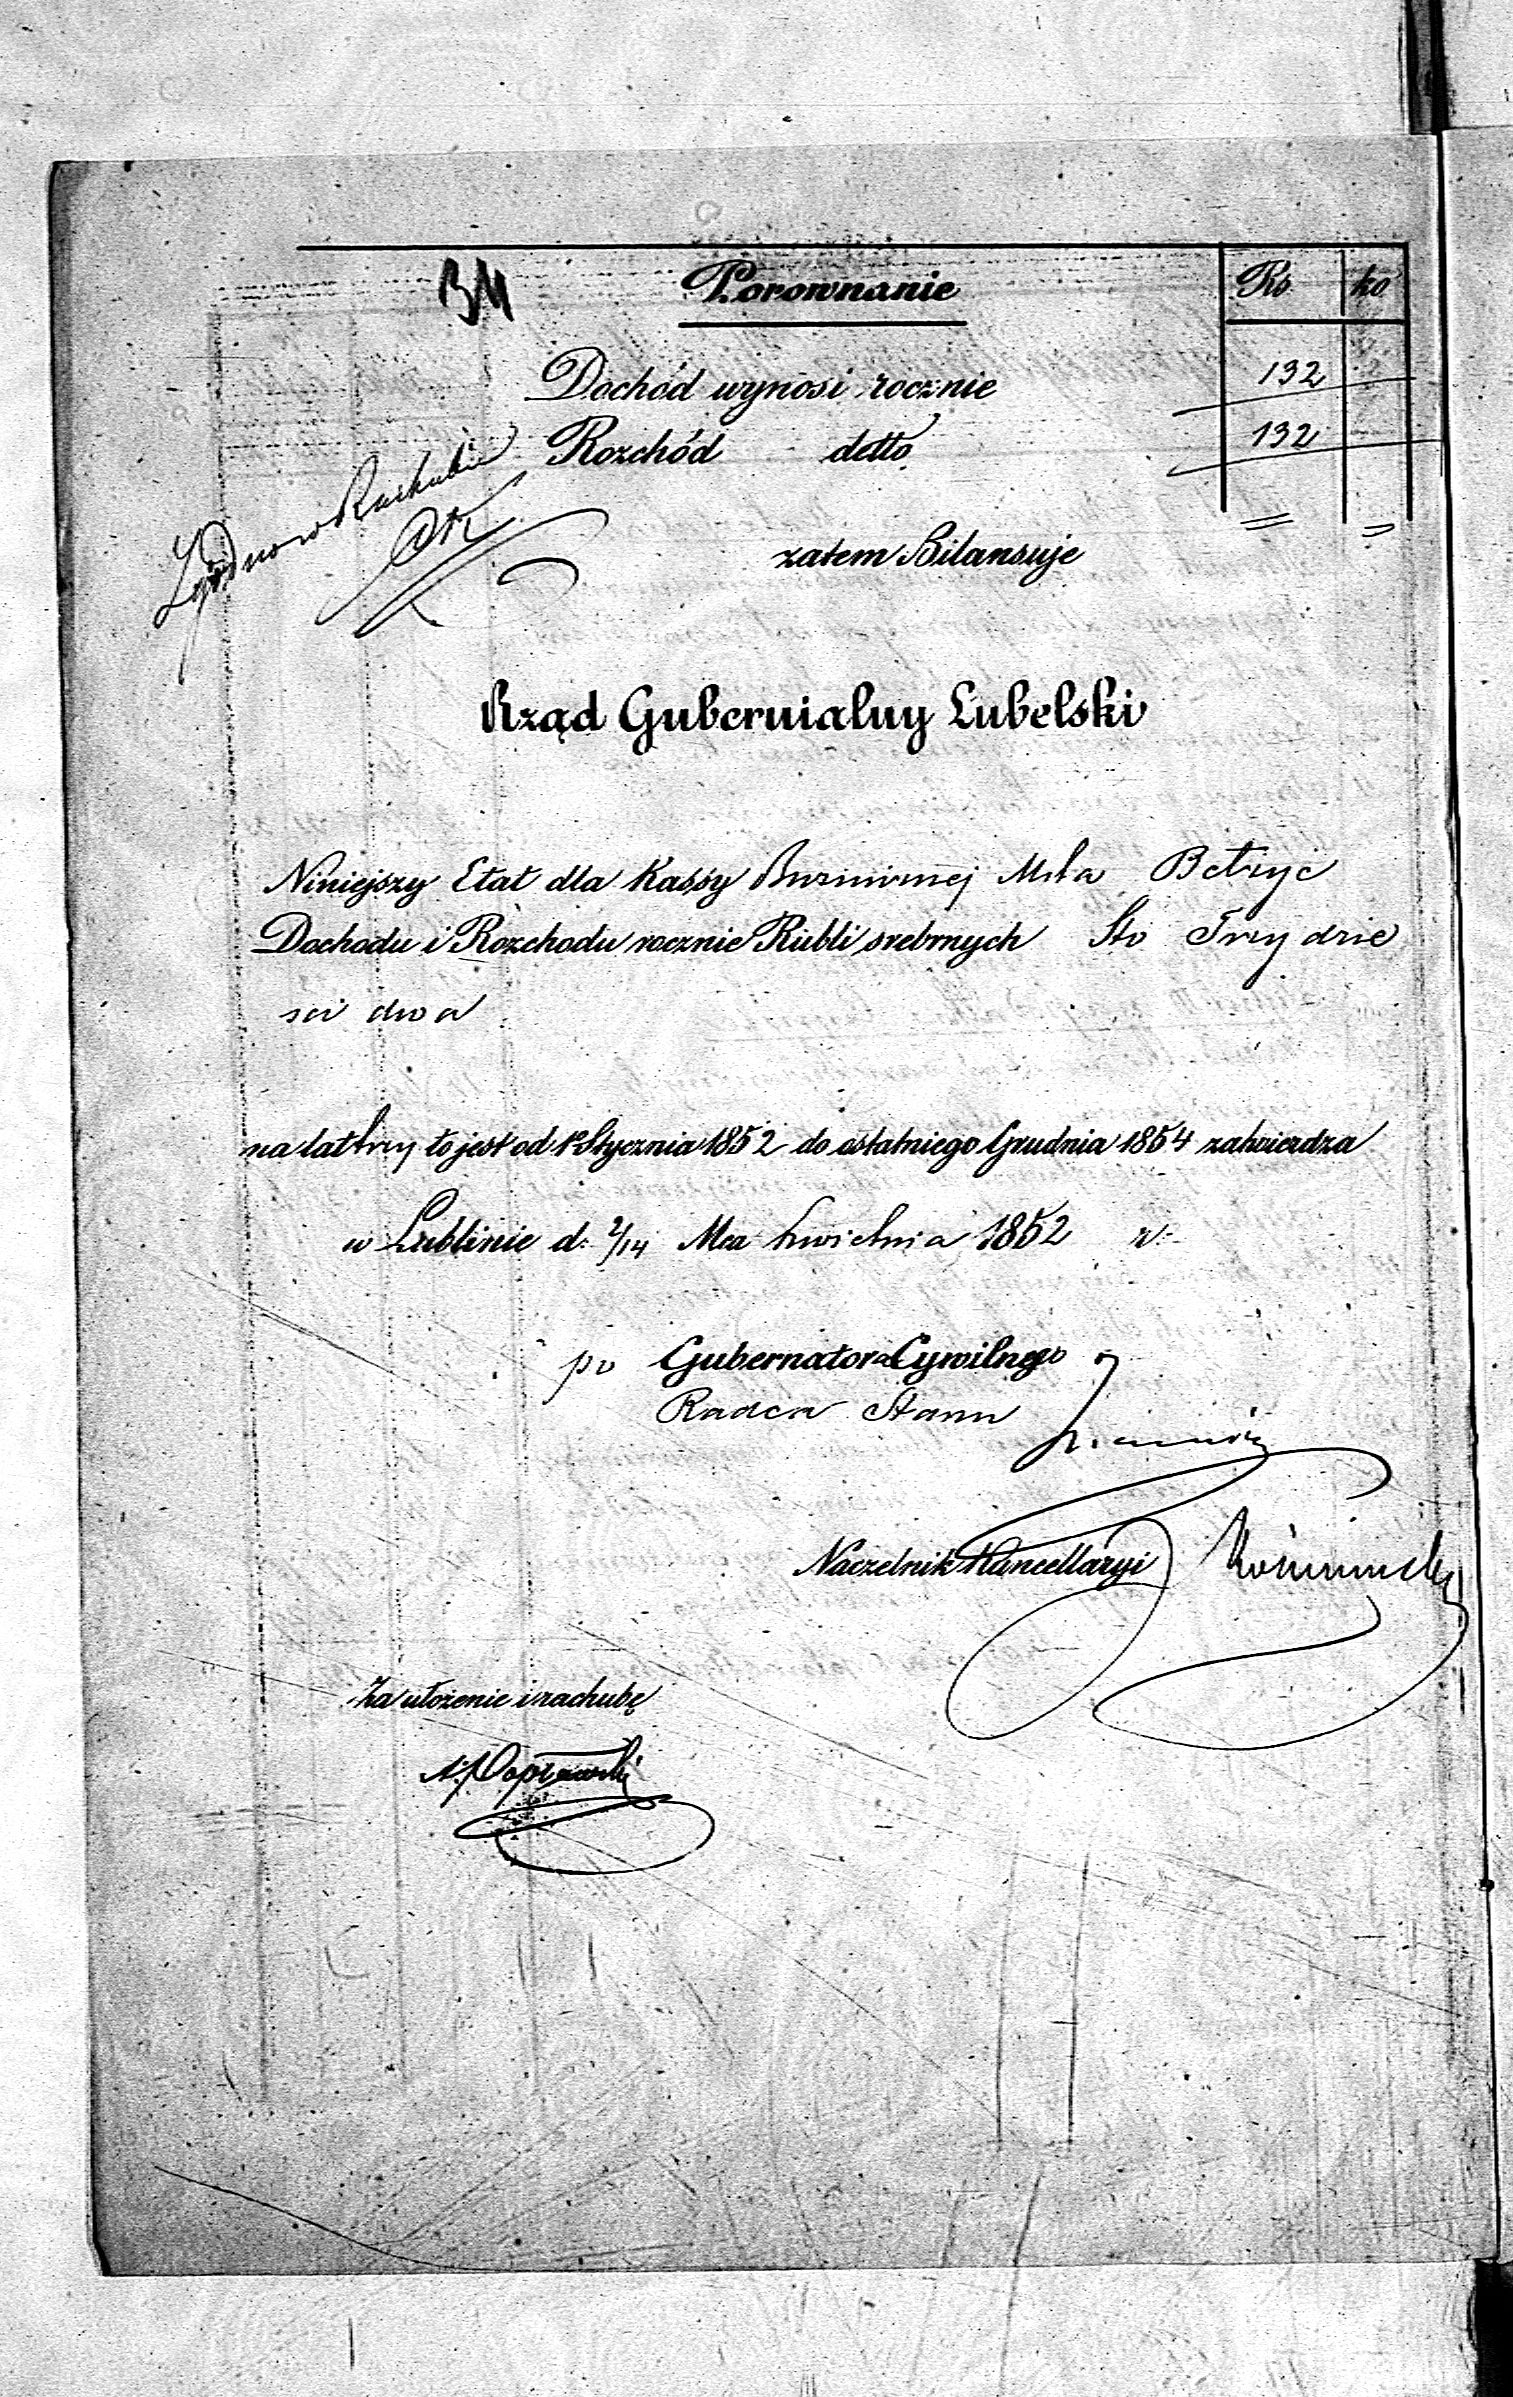 34
Porownanie
Rs ko
Dochód wynosi rocznie 132
Rozchód detto 132
Zgodno w Rachubie
zatem Bilansuje
Rząd Gubernialny Lubelski
Niniejszy Etat dla Kassy Bużnicznej Mta Betżyc
Dochodu i Rozchodu rocznie Rubli srebrnych Sto Trzydzie
sci dwa
na lat trzy to jest od 1º Stycznia 1852 do ostatniego Grudnia 1854 zatwierdza
w Lublinie d: 2/14 Mca Kwietnia 1852 r:
po Gubernatora Cywilnego
Radca Stanu
Naczelnik Kancellaryi
Za ułożenie i rachubę